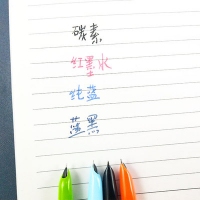 碳素
红墨水
纯蓝
蓝黑